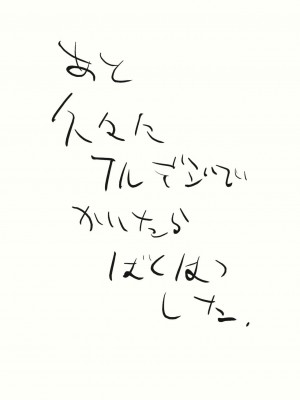 あと
久々に
フルで立いで
かいたら
ばくはつ
した.